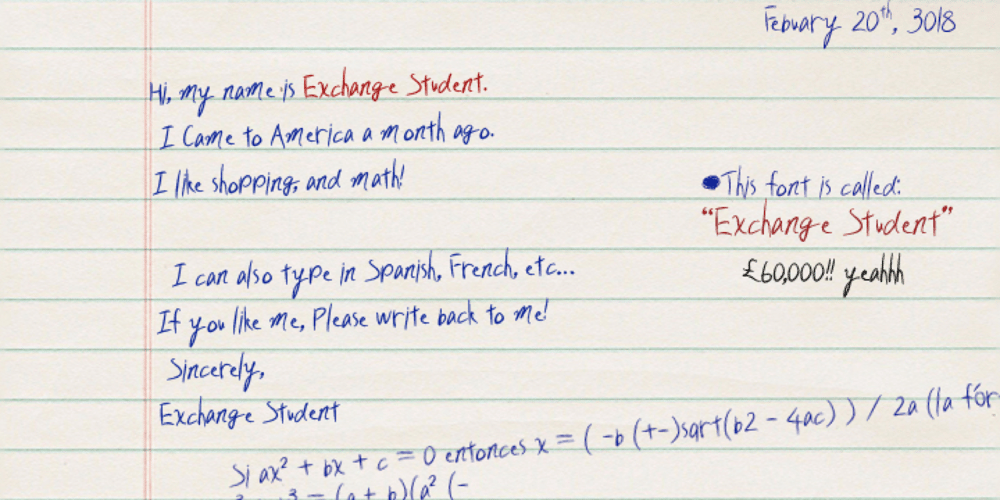 Febuary 20th, 3018
Hi, my name is Exchange Student.
I Came to America a month ago.
I like shopping, and math!
•This font is called:
“Exchange Student”
£60,000!! yeahhh
I can also type in Spanish, French, etc...
If you like me, Please write back to me!
Sincerely,
Exchange Student
Si ax² + bx + c = 0 entonces x = ( -b (+-)sqrt(b2 - 4ac) ) / 2a (la fór
= (a + b)(a² (-